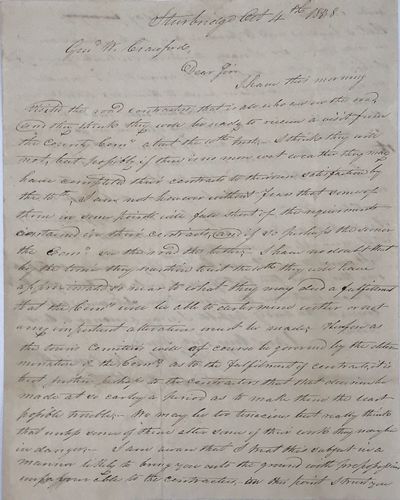 Sturbridge Oct 4th 1848.
Genl W. Crawford,
Dear Sir
I have this morning
the road contractors, that is all who are on the road,
and they think they will be ready to receive a visit from
the County Comrs about the 10th inst. I think they will
not, but possibly if there is no more wet weather they may
have completed their contracts to their own satisfaction by
the 10th. I am not however without fears that some of
them in some points will fall short of the requirements
contained in their contracts, and if so perhaps the sooner
the Comrs on the road the better. I have no doubt that
by the time they mention they will have
approximated so near to what they may call a fulfilment
that the Comrs will be able to determine whether or not
any important alterations must be made. Therefore as
the town Committee will of course be governed by the deter
mination of the Comrs as to the fulfilment of contracts it is
best perhaps to the contractors that that decision be
made at so early a period as to make them the least
possible trouble. We may be too tenacious but really think
that unless some of them alter some of their work they may be
in danger. I am aware that I treat this subject in a
manner likely to bring you onto the ground with prepossessions
unfavorable to the contractors, on this point I trust you